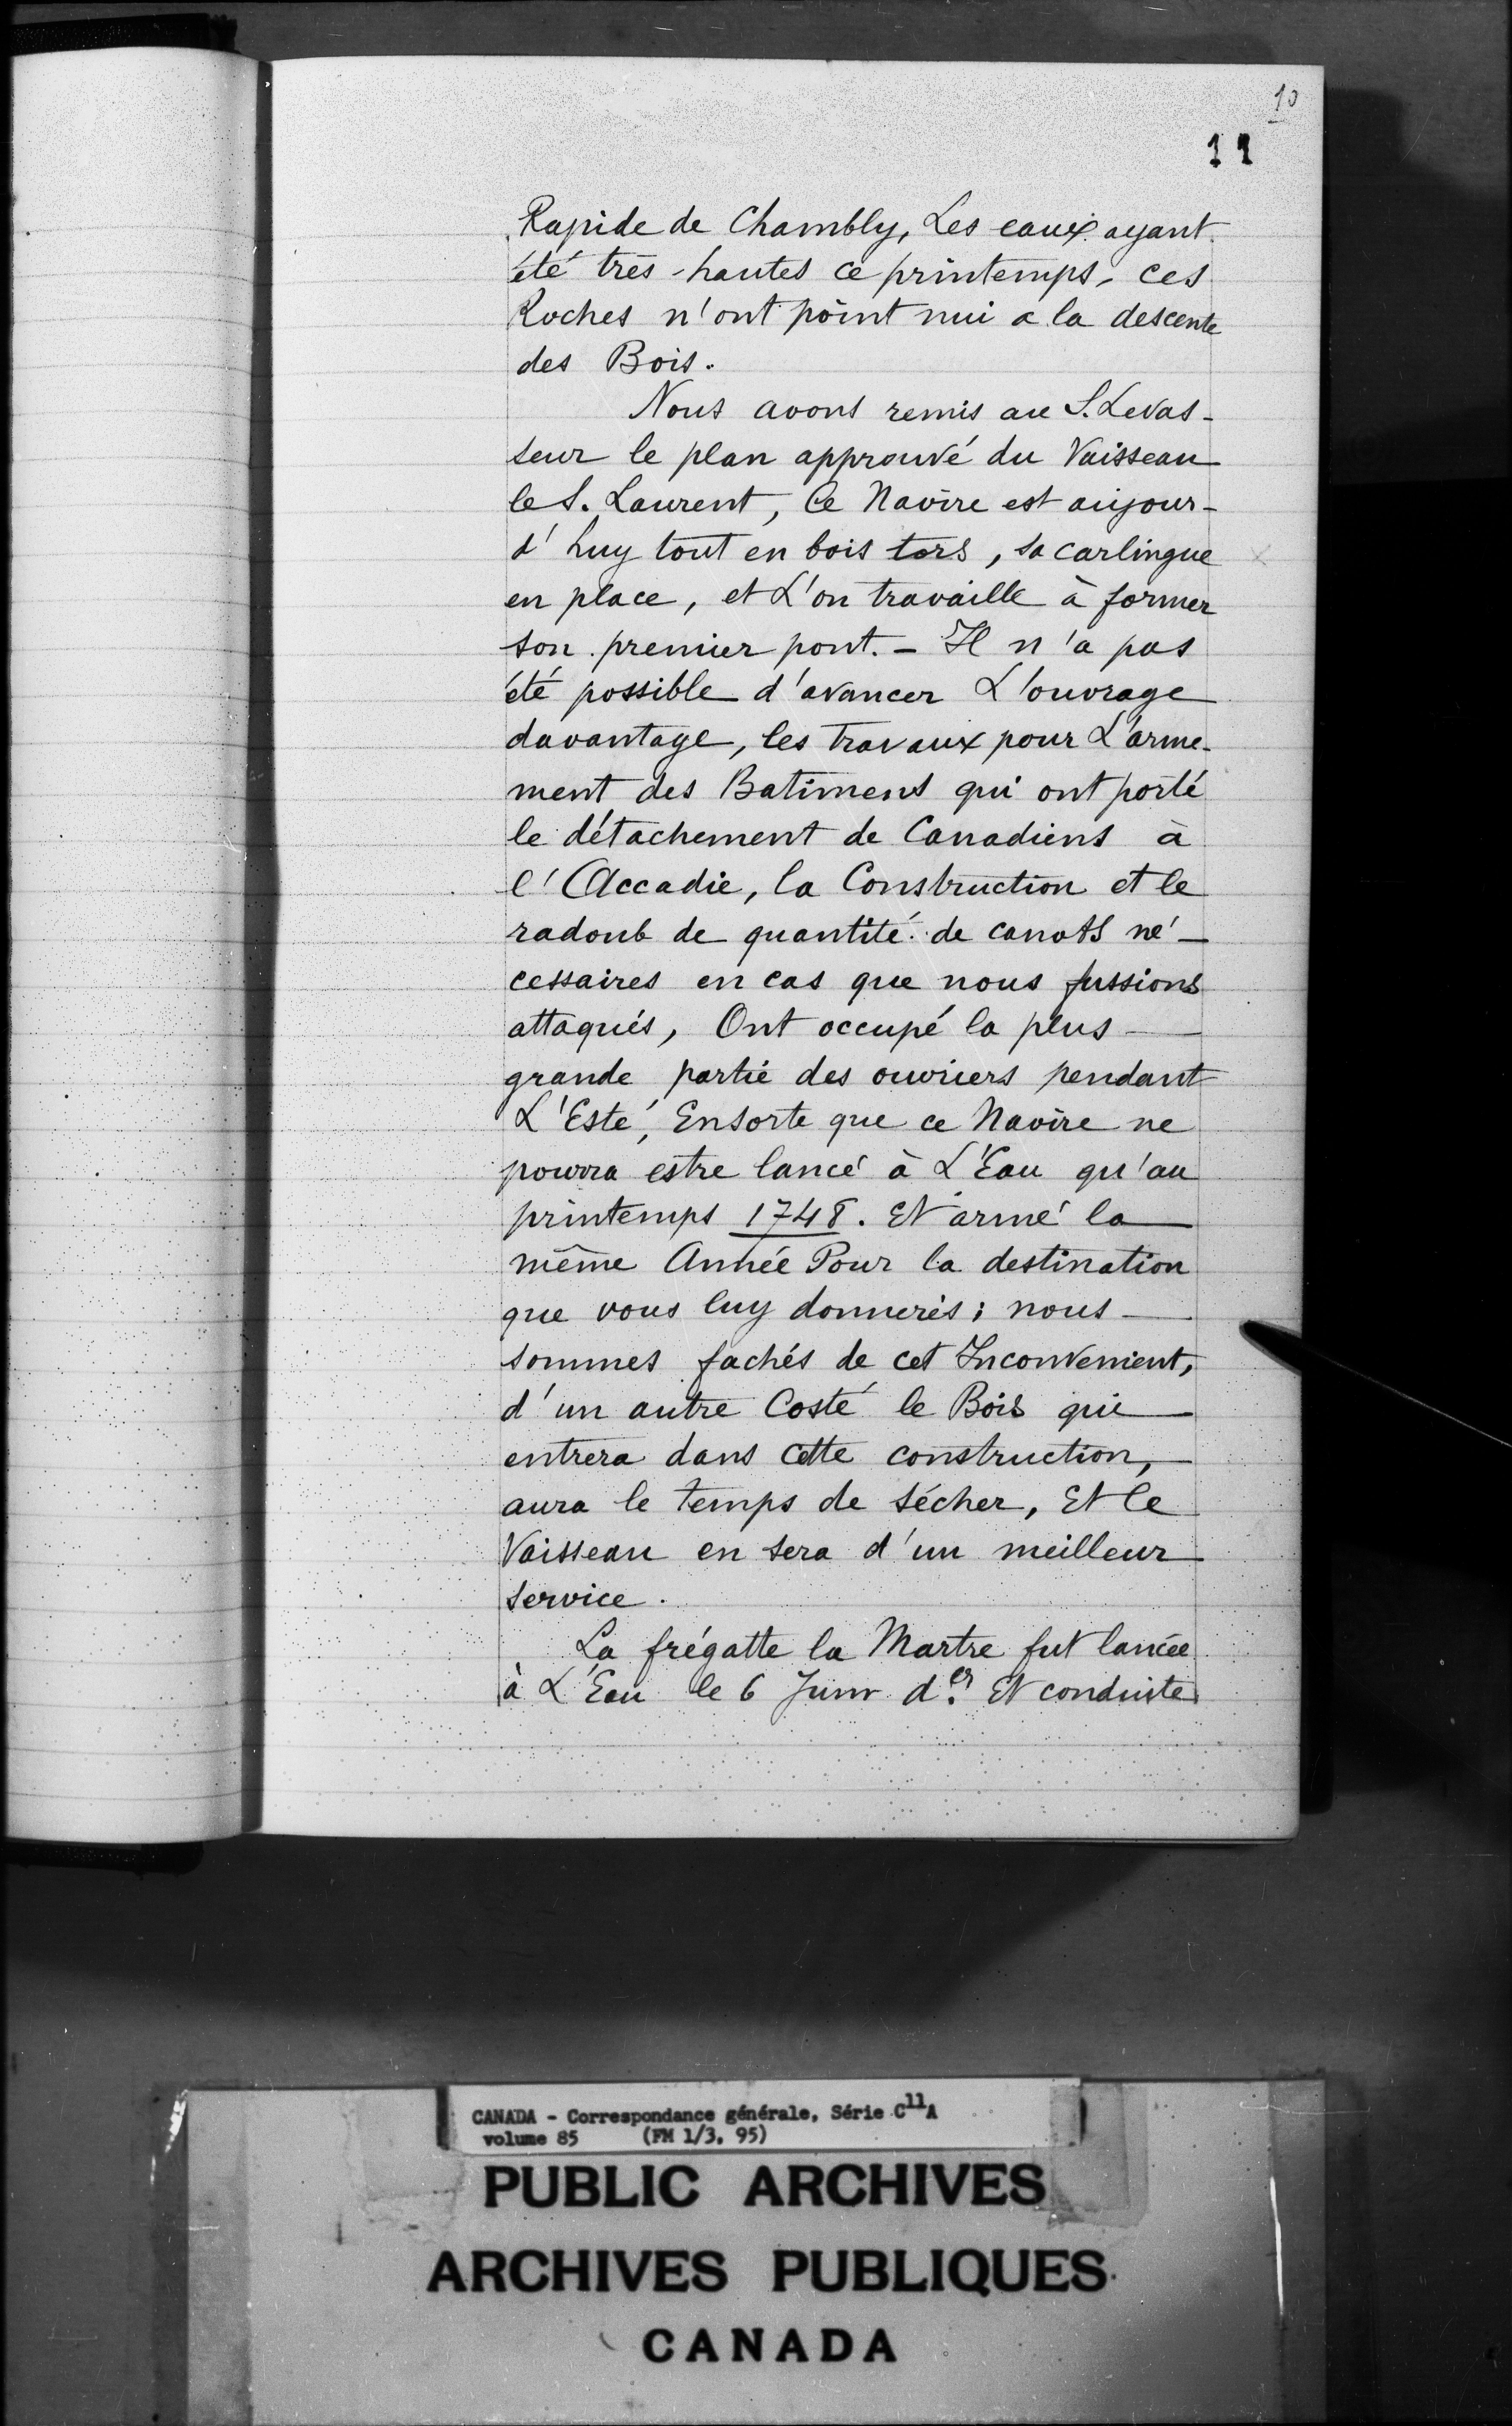 10
11
Rapide de Chambly, Les eaux ayant
été très-hautes ce printemps, ces
Roches n'ont point nui a la descente
des Bois.
Nous avons remis au S. Levas-
seur le plan approuvé du Vaisseau
le S. Laurent, Ce Navire est aujour-
d'huy tout en bois tors, sa carlingue
en place, et L'on travaille à former
son premier pont. - Il n'a pas
été possible d'avancer L'ouvrage
davantage, les travaux pour L'arme-
ment des Batimens qui ont porté
le détachement de Canadiens à
l'Accadie, la Construction et le
radoub de quantité de canots né-
cessaires en cas que nous fussions
attaqués, Ont occupé la plus
grande partie des ouvriers pendant
L'Esté, Ensorte que ce Navire ne
pourra estre lancé à L'Eau qu'au
printemps 1748. Et armé la
même Année Pour la destination
que vous luy donnerés; nous
sommes fachés de cet Inconvenient,
d'un autre Costé le Bois qui
entrera dans cette construction,
aura le temps de sécher, Et le
Vaisseau en sera d'un meilleur
service.
La frégatte la Martre fut lancée
à L'Eau le 6 Juin d.er Et conduite
CANADA - Correspondance générale, Série C11A
volume 85 (FM 1/3, 95)
PUBLIC ARCHIVES
ARCHIVES PUBLIQUES
CANADA